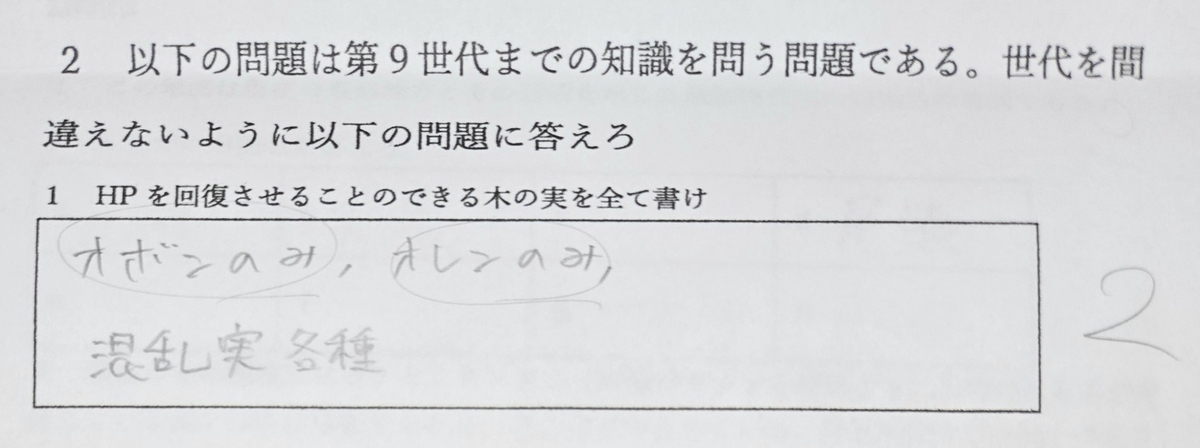 2 以下の問題は第9世代までの知識を問う問題である。世代を間
違えないように以下の問題に答えろ
1 HPを回復させることのできる木の実を全て書け
オボンのみ, オレンのみ,
混乱実各種
2